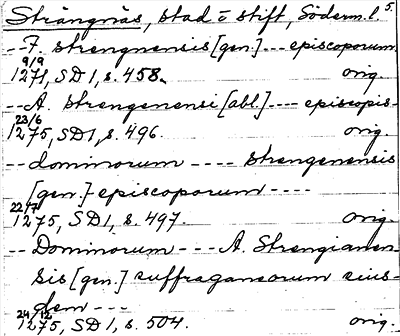 Strängnäs, stad o stift, Söderm. l. 5.
-- F. strengnensis [gen.] --- episcoporum
9/9 1271, SD 1, s. 458. orig.
-- A. strengenensi [abl.] ---- episcopis-
23/6 1275, SD 1, s. 496. orig.
-- dominorum ---- strengenensis
[gen.] - episcoporum ----
22/7 1275, SD 1, s. 497. orig.
-- Dominorum --- A. Strengianen-
sis [gen.] suffraganeorum eius-
dem ---
24/12 1275, SD 1, s. 504. orig.